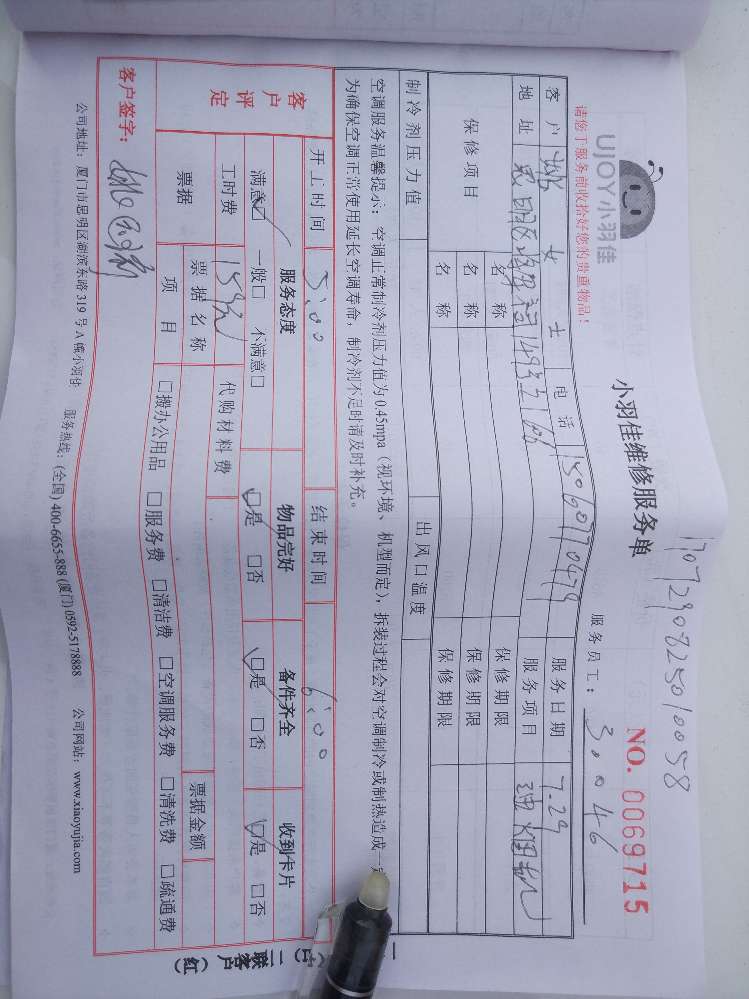 1707290825010058
UJOY小羽佳
小羽佳维修服务单
NO. 0069715
请您于服务前收拾好您的贵重物品!
服务员工: 30046
客户 姚女士 电话 服务日期 7.29
地址 服务项目 油烟机
保修项目 名称 保修期限
名称 保修期限
名称 保修期限
制冷剂压力值 出风口温度
空调服务温馨提示:空调正常制冷剂压力值为0.45mpa(视环境、机型而定),拆装过程会对空调制冷或制热造成一
为确保空调正常使用延长空调寿命,制冷剂不足时请及时补充。
开工时间 5:00 结束时间 6:00
客户评定 服务态度 物品完好 备件齐全 收到卡片
满意☑ 一般□ 不满意□ ☑是 □否 ☑是 □否 ☑是 □否
工时费 代购材料费
票据 票据名称 票据金额
项目 □搬办公用品 □服务费 □清洁费 □空调服务费 □清洗费 □疏通费
客户签字:
公司地址:厦门市思明区湖滨东路319号A幢小羽佳 服务热线:(全国) 400-6655-888 (厦门) 0592-5178888 公司网站:www.xiaoyujia.com
二联客户(红)